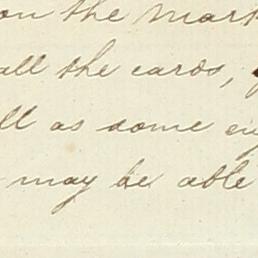 on the mark
all the cards,
ll as some en
may be able